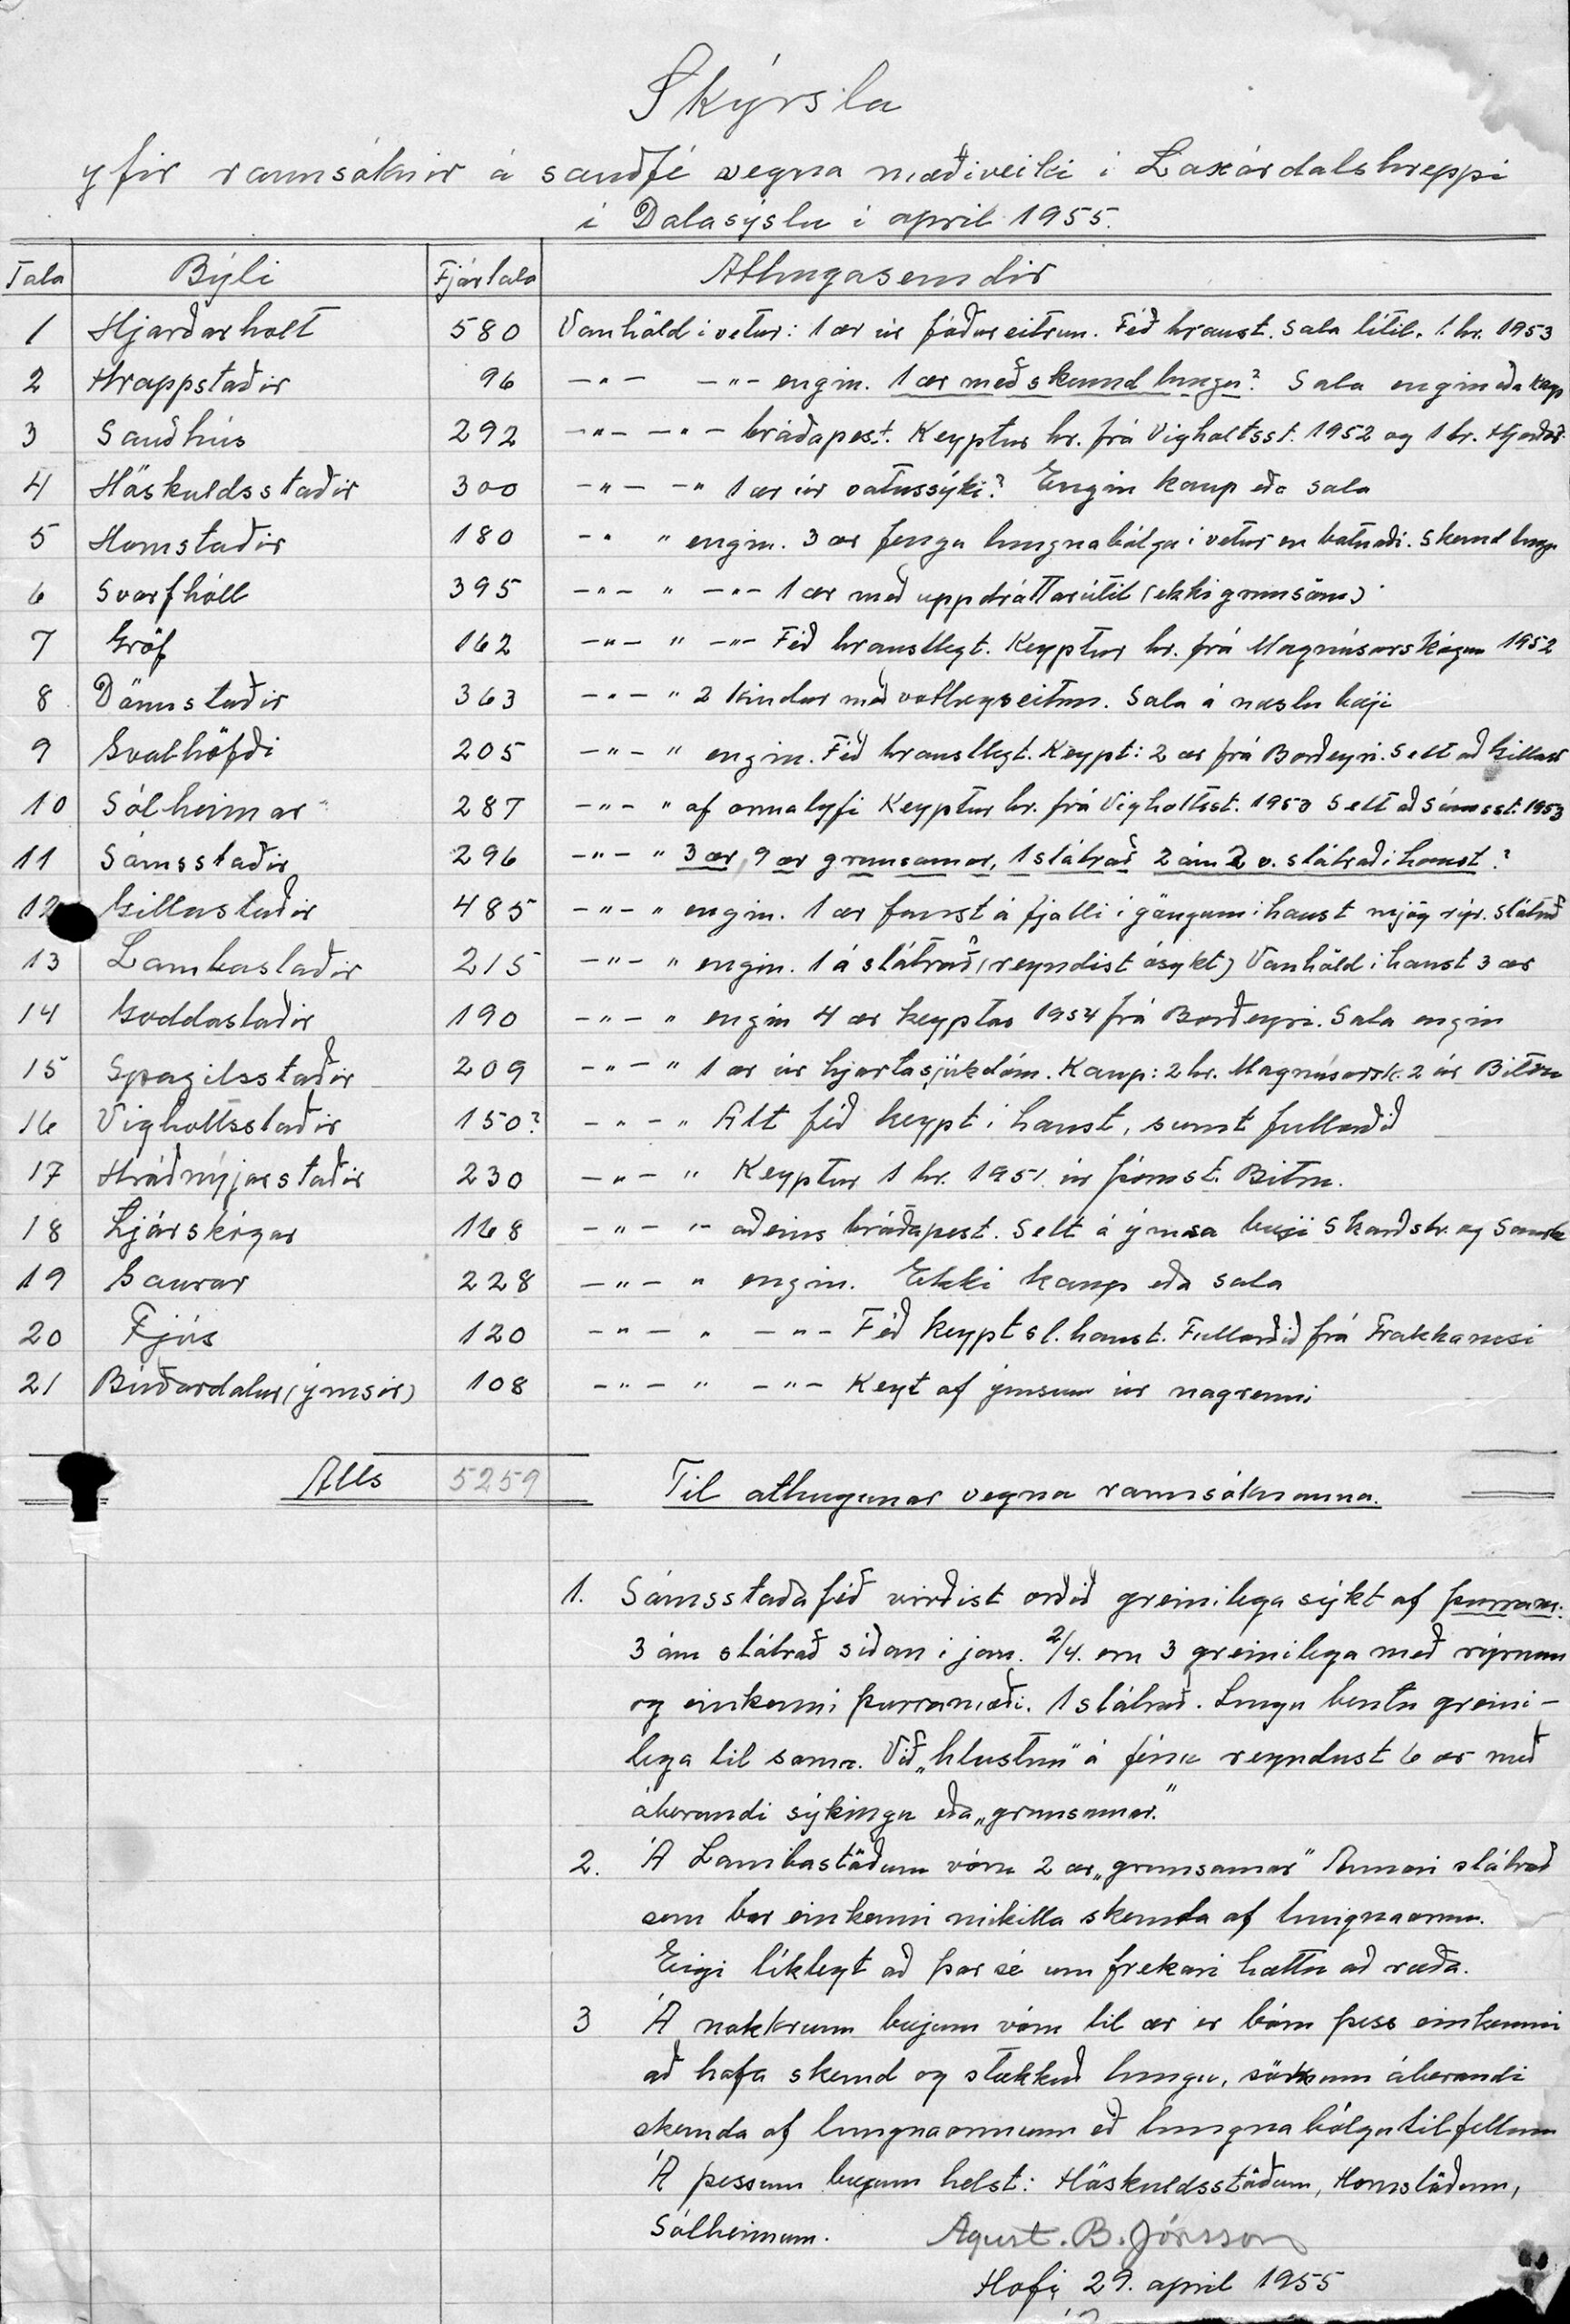 Skýrsla
yfir rannsóknir á sauðfé vegna mæðiveiki i Laxárdalshreppi
i Dalasýslu i april 1955.
Tala Býli Fjártala Athugasemdir
1 Hjarðarholt 580 Vanhöld i vetur: 1 ær úr fóðureitrun. Féð hraust. Sala lítil. 1. hr. 1953
2 Hrappstaðir 96 -"- -"- engin. 1 ær með skemd lungu? Sala engin eða kaup
3 Sauðhús 292 -"- -"- bráðapest. Keyptur hr. frá Vigholtsst. 1952 og 1 hr. Hjarðarh.
4 Höskuldsstaðir 300 -"- -" 1 ær úr vatussýki? Engin kaup eða sala
5 Hornstaðir 180 -" " engin. 3 ær fengu lungnabólgu i vetur en batnaði. Skemd lungu
6 Svarfhóll 395 -"- " -"- 1 ær með uppdráttarútlit (ekki grunsöm)
7 Gröf 162 -"- " -"- Féð hraustlegt. Keyptur hr. frá Magnúsarskógum 1952
8 Dönustaðir 363 -"- " 2 kindur með votheyseitrun. Sala á næstu bæji
9 Gvalhöfði 205 -"- " engin. Féð hraustlegt. Keypt: 2 ær frá Borðeyri. Selt að Gillast
10 Sólheimar 287 -"- " af ormalyfi Keyptur hr. frá Vigholtsst. 1950 Selt að Sámsst. 1953
11 Sámsstaðir 296 -"- " 3 ær, 9 ær grunsamar, 1 slátrað 2 ám 2 v. slátrað i haust?
12 Gillastaðir 485 -"- " engin. 1 ær fanst á fjalli i göngum i haust mjög rýr. slátrað
13 Lambastaðir 215 -"- " engin. 1 á slátrað (reyndist ósýkt) Vanhöld i haust 3 ær
14 Goddastaðir 190 -"- " engin 4 ær keyptar 1954 frá Borðeyri. Sala engin
15 Spágilsstaðir 209 -"- " 1 ær úr hjartasjúkdóm. Kaup: 2 hr. Magnúsarsk. 2 úr Bitru
16 Vigholtsstaðir 150? -"- " Alt féð keypt i haust, sumt fullorðið
17 Hróðnýjarstaðir 230 -"- " Keyptur 1 hr. 1951. úr Þómst. Bitru.
18 Ljárskógar 168 -"- "- aðeins bráðapest. Selt á ýmsa bæji Skarðstr. og Saurb
19 Saurar 228 -"- " engin. Ekki kaup eða sala
20 Fjós 120 -"- " -"- Féð keypt sl. haust. Fullorðið frá Frakkanesi
21 Búðardalur (ýmsir) 108 -"- " -"- Keyt af ýmsum úr nagrenni
Alls 5259 Til athugunar vegna rannsóknanna.
1. Sámsstaða féð virðist orðið greinilega sýkt af þurram.
3 ám slátrað siðan i jan. 2/4. eru 3 greinilega með rýrnun
og einkenni þurramæði. 1 slátrað. Lungu bentu greini-
lega til sama. Við „hlustun" á fénu reyndust 6 ær með
áberandi sýkingu eða „grunsamar."
2. Á Lambastöðum vóru 2 ær „grunsamar" Annari slátrað
sem bar einkenni mikilla skemda af lungnaormu.
Eigi líklegt að þar sé um frekari hættu að ræða.
3 Á nokkrum bæjum vóru til ær er báru þess einkenni
að hafa skemd og stækkuð lungu, sökum áberandi
skemda af lungnaormum eð lungnabólgutilfellum
Á þessum bæjum helst: Höskuldsstöðum, Hornstöðum,
Sólheimum. Agust. B. Jónsson
Hofi, 29. april 1955